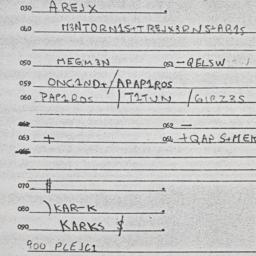 030 AREJX
040
050 MEGM3N 051 -QELSW
059 ONC1ND+/APAP1ROS
060 PAP1ROS / T1TUN / G1PZ3S
062 -
063 + 064 +QAP S+MEK
070 $
080 )KAR-K
090 KARKS $
900 PLEJC1